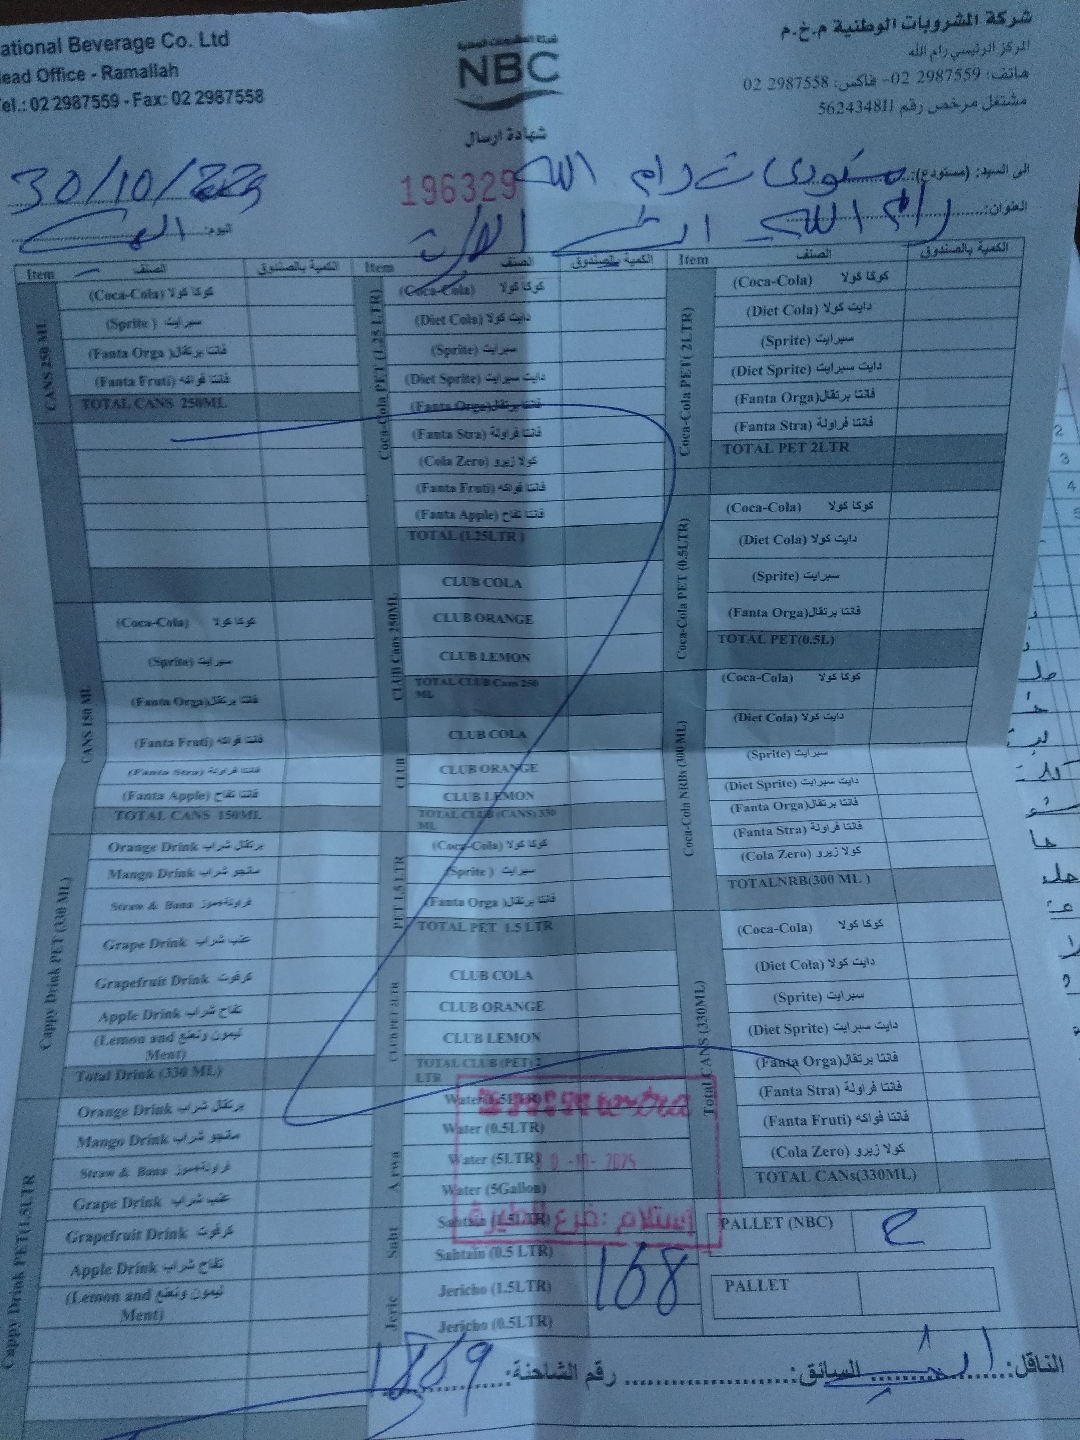 ational Beverage Co. Ltd
ead Office - Ramallah
Tel.: 02 2987559 - Fax: 02 2987558
NBC
شركة المشروبات الوطنية م.خ.م
المركز الرئيسي رام الله
هاتف: 2987559 02- فاكس: 2987558 02
مشتغل مرخص رقم 562434811
شهادة ارسال
196329
30/10/
الى السيد: (مستودع): رام الله
العنوان: رام الله
اليوم:
Item الصنف الكمية بالصندوق
CANS 250 ML
(Coca-Cola) كوكا كولا
(Sprite) سبرايت
(Fanta Orga) فانتا برتقال
(Fanta Fruti) فانتا فواكه
TOTAL CANS 250ML
CANS 150 ML
(Coca-Cola) كوكا كولا
(Sprite) سبرايت
(Fanta Orga) فانتا برتقال
(Fanta Fruti) فانتا فواكه
(Fanta Stra) فانتا فراولة
(Fanta Apple) فانتا تفاح
TOTAL CANS 150ML
Cappy Drink PET (330 ML)
Orange Drink برتقال شراب
Mango Drink مانجو شراب
Straw & Bana فراولة+موز
Grape Drink عنب شراب
Grapefruit Drink كرفوت
Apple Drink تفاح شراب
(Lemon and Ment) ليمون ونعنع
Total Drink (330 ML)
Cappy Drink PET(1.5LTR
Orange Drink برتقال شراب
Mango Drink مانجو شراب
Straw & Bana فراولة+موز
Grape Drink عنب شراب
Grapefruit Drink كرفوت
Apple Drink تفاح شراب
(Lemon and Ment) ليمون ونعنع
Item الصنف الكمية بالصندوق
Coca-Cola PET (1.25 LTR)
(Coca-Cola) كوكا كولا
(Diet Cola) دايت كولا
(Sprite) سبرايت
(Diet Sprite) دايت سبرايت
(Fanta Orga) فانتا برتقال
(Fanta Stra) فانتا فراولة
(Cola Zero) كولا زيرو
(Fanta Fruti) فانتا فواكه
(Fanta Apple) فانتا تفاح
TOTAL (1.25LTR )
CLUB Cans 250ML
CLUB COLA
CLUB ORANGE
CLUB LEMON
TOTAL CLUB Cans 250 ML
CLUB
CLUB COLA
CLUB ORANGE
CLUB LEMON
TOTAL CLUB (CANS) 330 ML
PET 1.5 LTR
(Coca-Cola) كوكا كولا
(Sprite) سبرايت
(Fanta Orga) فانتا برتقال
TOTAL PET 1.5 LTR
CLUB PET 2LTR
CLUB COLA
CLUB ORANGE
CLUB LEMON
TOTAL CLUB (PET) 2 LTR
Arwa
Water (1.5LTR)
Water (0.5LTR)
Water (5LTR)
Water (5Gallon)
Saht
Sahtain (1.5LTR)
Sahtain (0.5 LTR)
Jeric
Jericho (1.5LTR)
Jericho (0.5LTR)
168
-10- 2025
إستلام :فرع الطيرة
Item الصنف الكمية بالصندوق
Coca-Cola PET ( 2LTR)
(Coca-Cola) كوكا كولا
(Diet Cola) دايت كولا
(Sprite) سبرايت
(Diet Sprite) دايت سبرايت
(Fanta Orga) فانتا برتقال
(Fanta Stra) فانتا فراولة
TOTAL PET 2LTR
Coca-Cola PET (0.5LTR)
(Coca-Cola) كوكا كولا
(Diet Cola) دايت كولا
(Sprite) سبرايت
(Fanta Orga) فانتا برتقال
TOTAL PET(0.5L)
Coca-Cola NRBs (300 ML)
(Coca-Cola) كوكا كولا
(Diet Cola) دايت كولا
(Sprite) سبرايت
(Diet Sprite) دايت سبرايت
(Fanta Orga) فانتا برتقال
(Fanta Stra) فانتا فراولة
(Cola Zero) كولا زيرو
TOTALNRB(300 ML )
Total CANS (330ML)
(Coca-Cola) كوكا كولا
(Diet Cola) دايت كولا
(Sprite) سبرايت
(Diet Sprite) دايت سبرايت
(Fanta Orga) فانتا برتقال
(Fanta Stra) فانتا فراولة
(Fanta Fruti) فانتا فواكه
(Cola Zero) كولا زيرو
TOTAL CANs(330ML)
PALLET (NBC)
PALLET
الناقل: السائق: رقم الشاحنة: